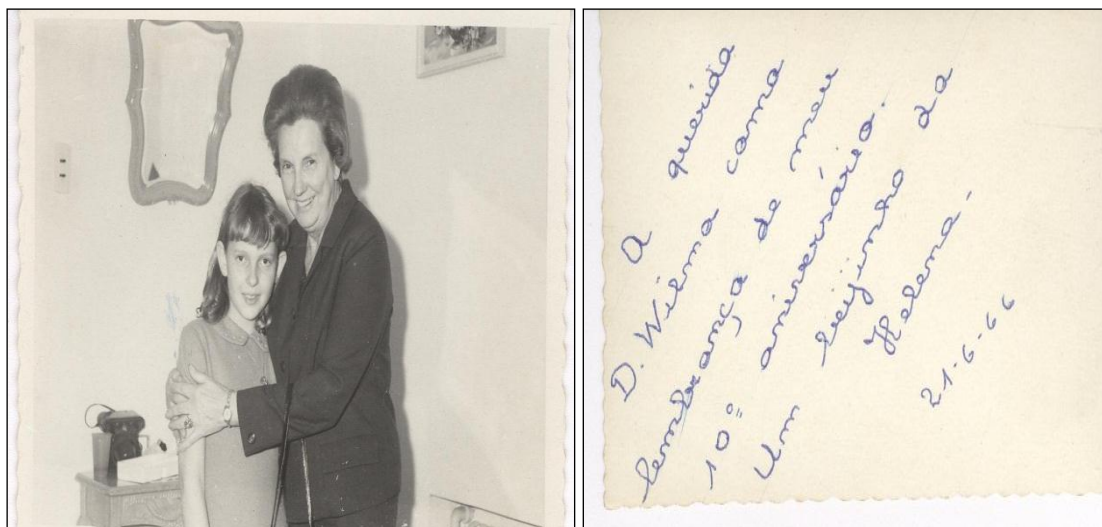 A querida
D. Wilma como
lembrança de meu
10º aniversário.
Um beijinho da
Helena.
21-6-66